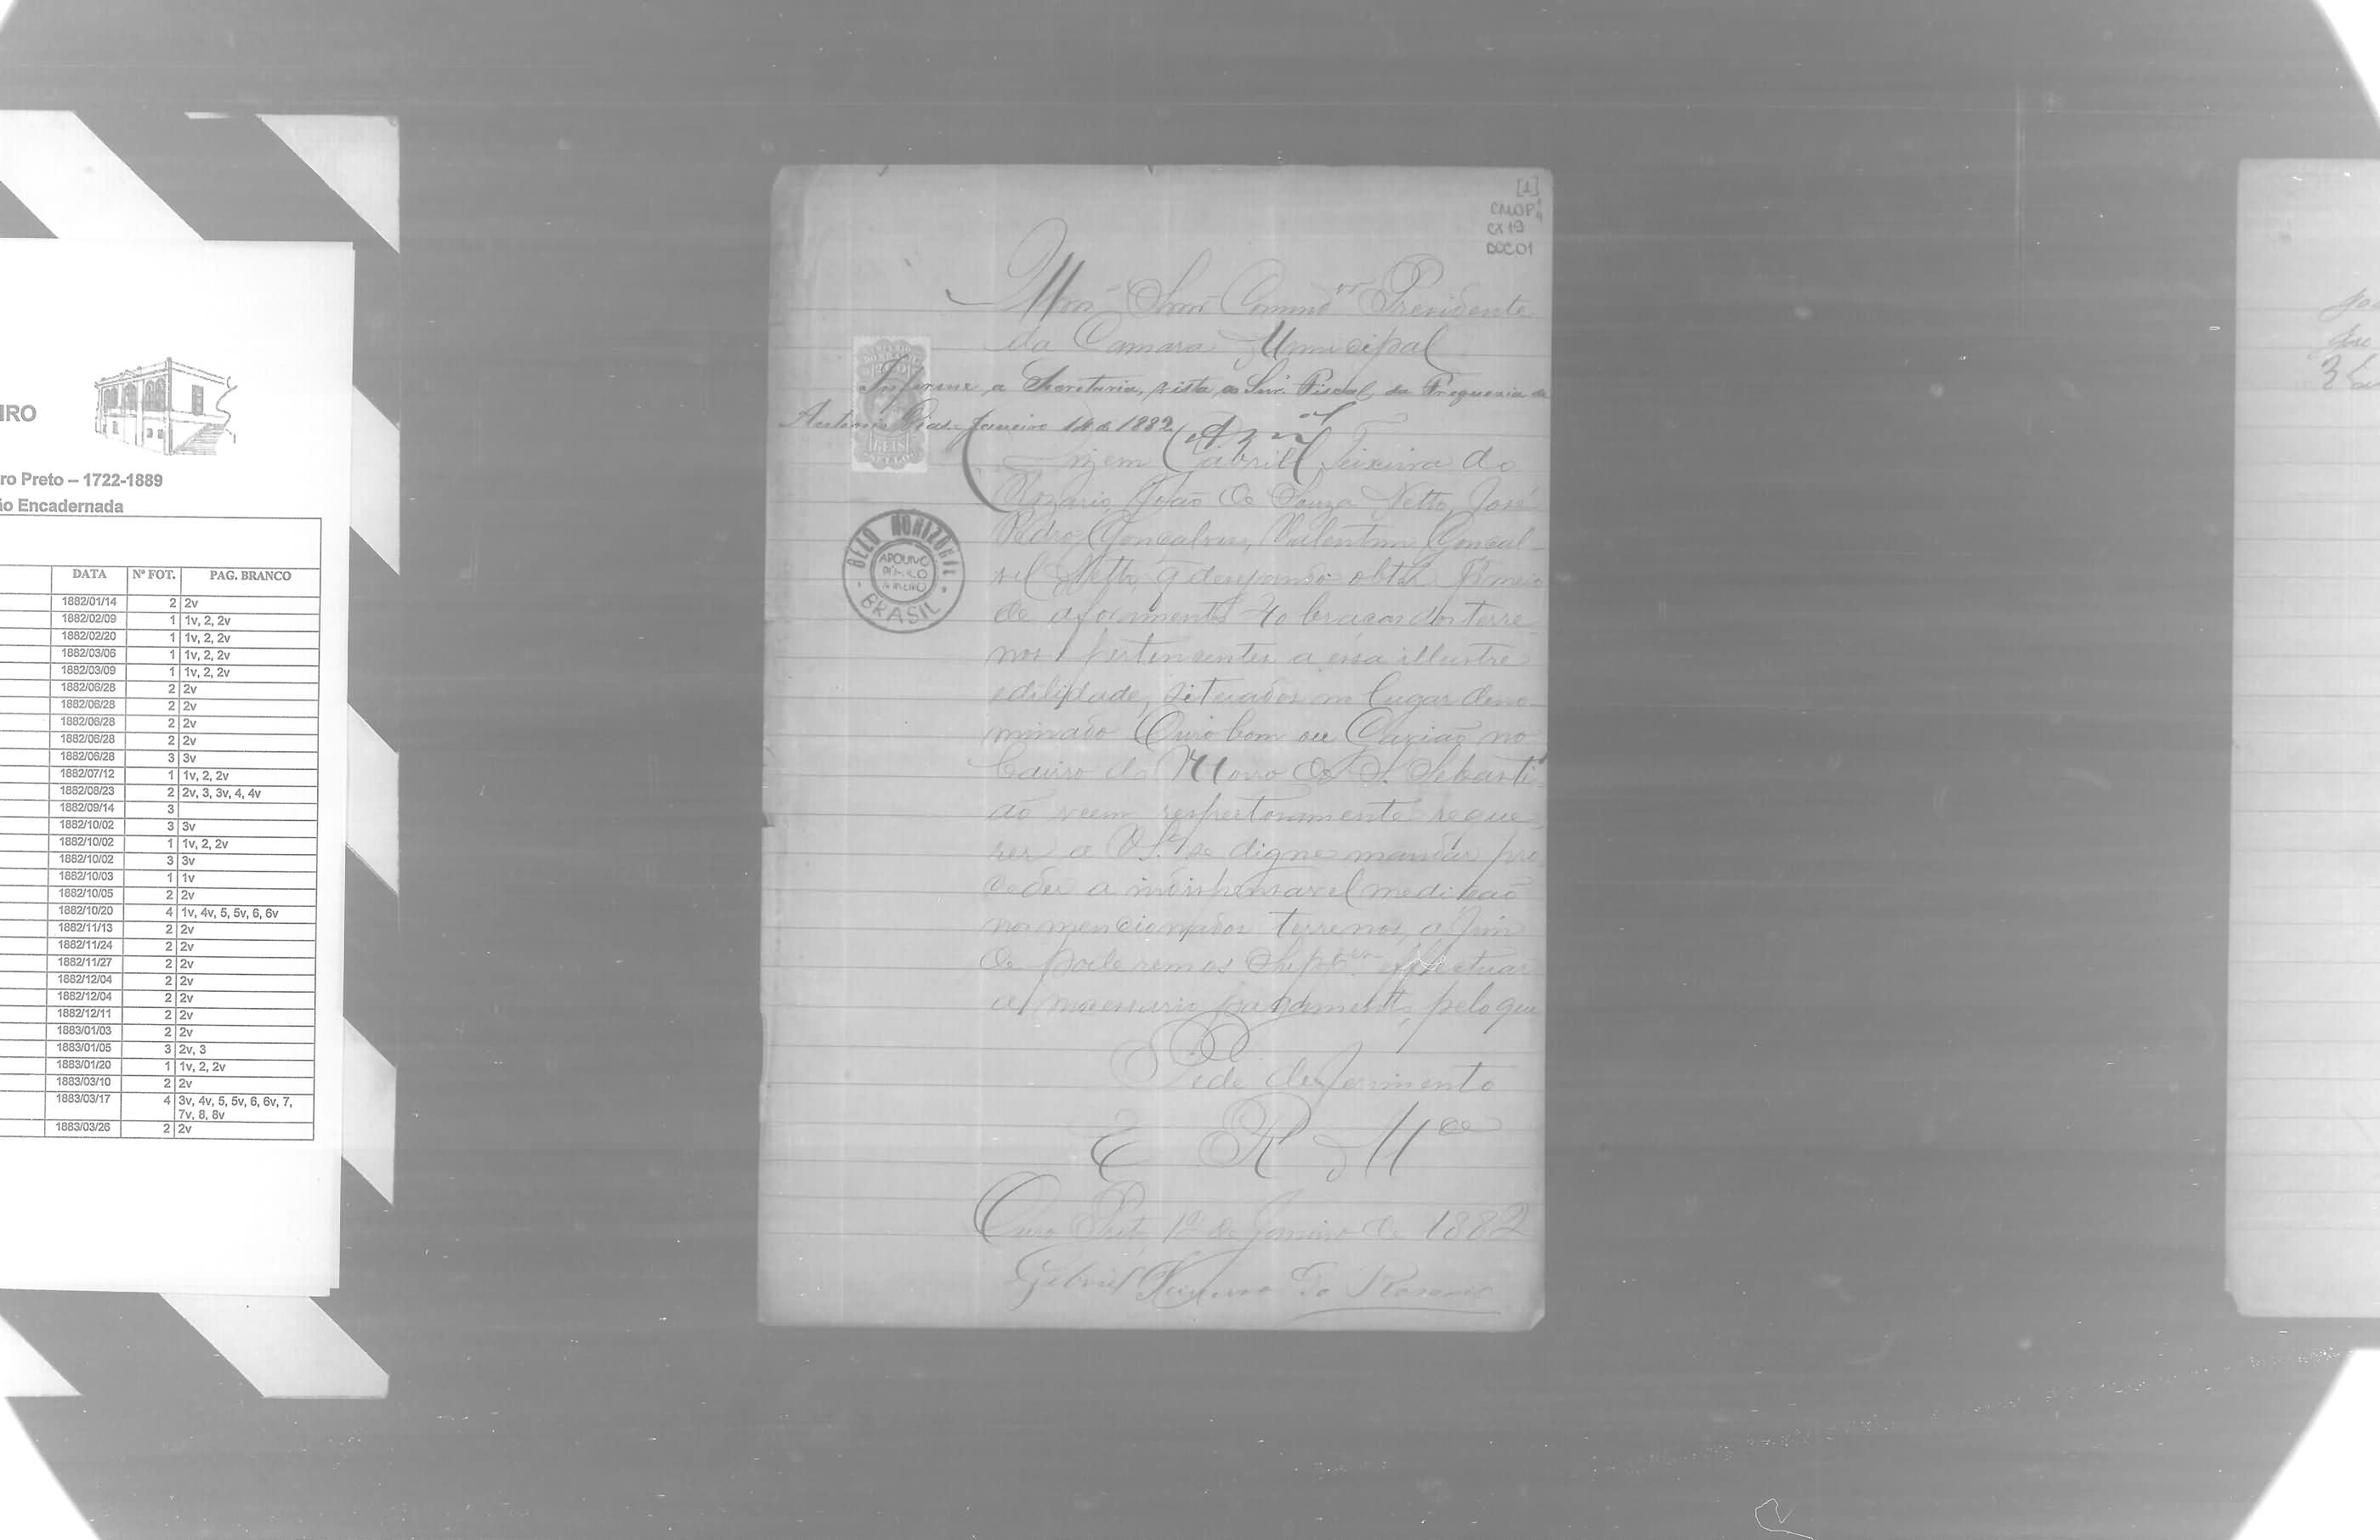 IRO
ro Preto – 1722-1889
io Encadernada
DATA Nº FOT. PAG. BRANCO
1882/01/14 2 2v
1882/02/09 1 1v, 2, 2v
1882/02/20 1 1v, 2, 2v
1882/03/06 1 1v, 2, 2v
1882/03/09 1 1v, 2, 2v
1882/06/28 2 2v
1882/06/28 2 2v
1882/06/28 2 2v
1882/06/28 2 2v
1882/06/28 3 3v
1882/07/12 1 1v, 2, 2v
1882/08/23 2 2v, 3, 3v, 4, 4v
1882/09/14 3
1882/10/02 3 3v
1882/10/02 1 1v, 2, 2v
1882/10/02 3 3v
1882/10/03 1 1v
1882/10/05 2 2v
1882/10/20 4 1v, 4v, 5, 5v, 6, 6v
1882/11/13 2 2v
1882/11/24 2 2v
1882/11/27 2 2v
1882/12/04 2 2v
1882/12/04 2 2v
1882/12/11 2 2v
1883/01/03 2 2v
1883/01/05 3 2v, 3
1883/01/20 1 1v, 2, 2v
1883/03/10 2 2v
1883/03/17 4 3v, 4v, 5, 5v, 6, 6v, 7,
7v, 8, 8v
1883/03/26 2 2v
[1]
CX 19
DOC 01
Illmo Snr Commdor Presidente
da Camara Municipal
Informe a Secretaria, o Snr. Fiscal da Freguezia de
Antonio Dias. Janeiro 14 de 1882
200
REIS
Gabriel Teixeira do
Rozario, João de Souza Netto, José
Pedro Gonçalves, Valentim Gonçal-
Netto, q. obter
de aforamento 40 braças dos terre
nos pertencentes a essa illustre
edilidade, situados no lugar deno-
minado Ouro bom ou no
bairro do Morro de S. Sebasti
ão veem respeitosamente reque
rer a V.Sª se digne mandar pro
ceder a indispensavel medição
nos mencionados terrenos, a fim
de poderemos Supptes effectuar
o necessario pagamento, pelo que
Pede deferimento
E R Mce
Ouro Preto de Janeiro de 1882
Gabriel Teixeira do Rosario
BELO HORIZONTE
ARQUIVO
PÚBLICO
MINEIRO
BRASIL